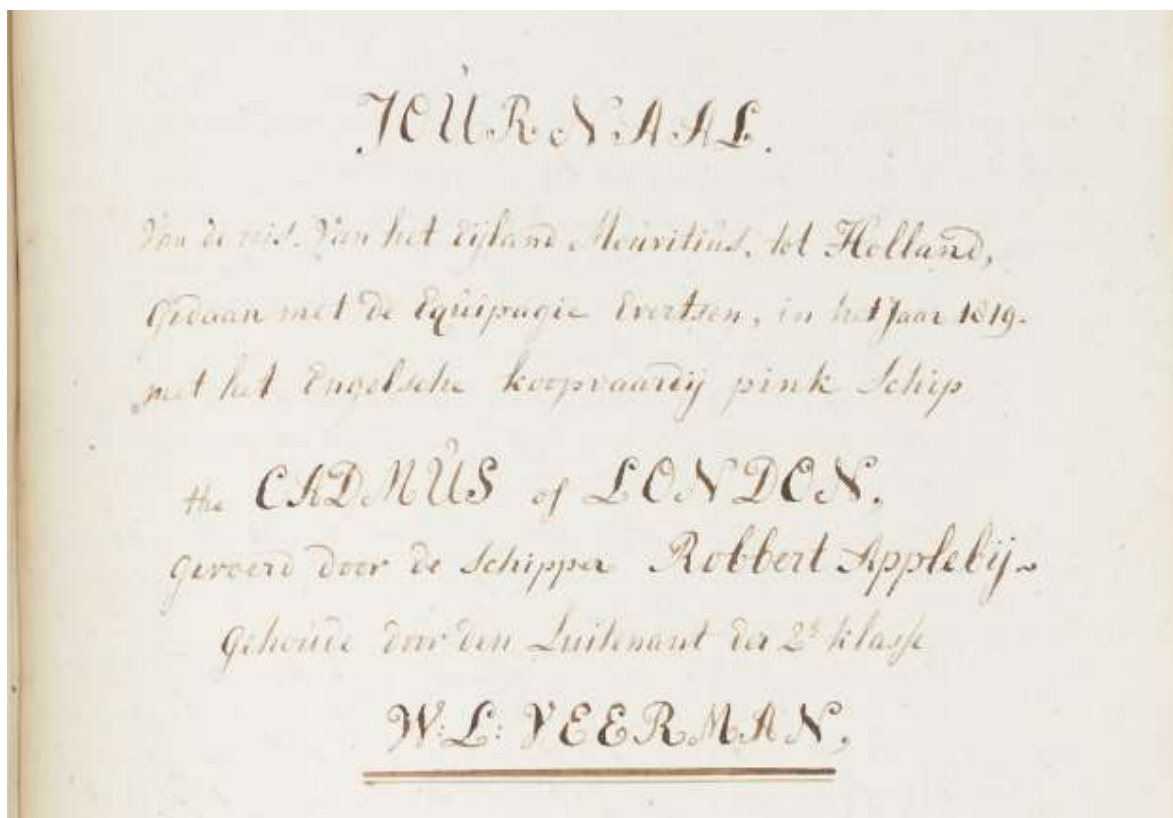 JOÛRNAAL.
Van de reis. Van het Eijland Meuritius, tot Holland,
Gedaan met de Equipagie Evertsen, in het Jaar 1819.
met het Engelsche koopvaardij pink Schip
the CADMÛS of LONDON,
Gevoerd door de Schipper Robbert Applebij~
Gehoude door den Luitenant der 2e klasse
W: L: VEERMAN,